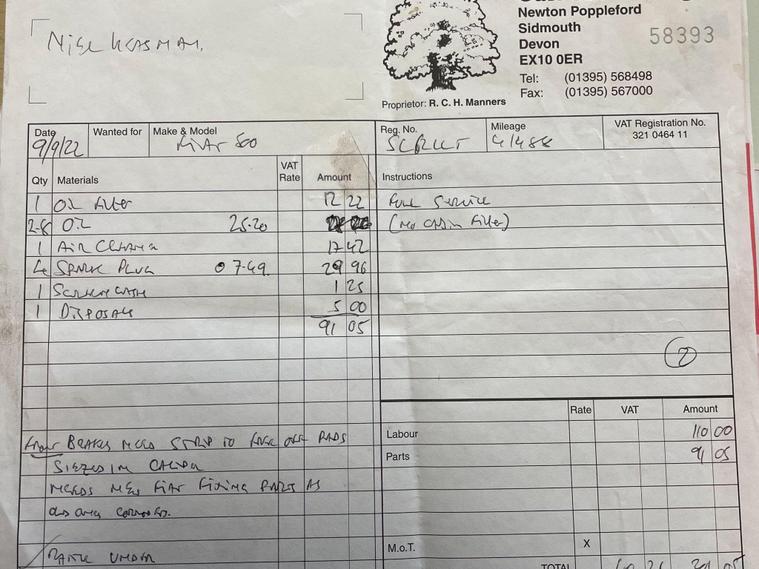 Newton Poppleford
Sidmouth
Devon
EX10 0ER
58393
Tel: (01395) 568498
Fax: (01395) 567000
Proprietor: R. C. H. Manners
Date 9/9/22 Wanted for Make & Model Fiat 500 Reg. No. Mileage 41488 VAT Registration No. 321 0464 11
Qty Materials VAT Rate Amount Instructions
1 Oil Filter 12 22 Full Service
2.8 Oil 25.20 (No Cabin Filter)
1 Air Cleaner 17 42
4 Spark Plug 7.49 29 96
1 Screenwash 1 25
1 Disposals 5 00
91 05
Rate VAT Amount
Labour 110 00
Parts 91 05
Front Brakes need strip to free off pads
siezed in caliper
needs new Fiat fixing parts as
old ones corroded.
M.o.T. X
TOTAL